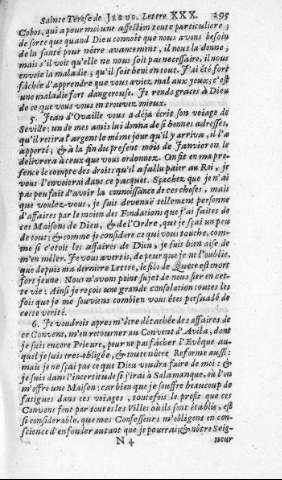 Sainte Térése de JESUS. Lettre XXX. 295
Cobos, qui a pour moi une affection toute particuliere;
de sorte que quand Dieu connoît que nous avons besoin
de la santé pour nôtre avancement, il nous la donne;
mais s'il voit qu'elle ne nous soit pas necessaire, il nous
envoie la maladie; qu'il soit beni en tout. J'ai été fort
fâchée d'apprendre que vous aviez mal aux yeux; c'est
une maladie fort dangereuse. Je rends graces à Dieu
de ce que vous vous en trouvez mieux.
5. Jean d'Ovaille vous a déja écrit son voiage de
Seville: un de mes amis lui donna de si bonnes adresses,
qu'il retira l'argent le même jour qu'il y arriva, il l'a
apporté; & à la fin du present mois de Janvier on le
delivrera à ceux que vous ordonnez. On fit en ma pre-
sence le compte des droits qu'il a fallu paier au Roi, je
vous l'envoierai dans ce pacquet. Sçachez que je n'ai
pas peu fait d'avoir la connoissance de ces choses, mais
que voulez-vous, je suis devenuë tellement personne
d'affaires par le moien des Fondations que j'ai faites de
ces Maisons de Dieu, & de l'Ordre, que je sçai un peu
de tout; & comme je considere ce qui vous touche, com-
me si c'étoit les affaires de Dieu, je suis bien aise de
m'en mêler. Je vous avertis, de peur que je ne l'oublie,
que depuis ma derniere Lettre, le fils de est mort
fort jeune. Nous n'avons point sujet de nous fier en cette
vie: Ainsi je reçois une grande consolation toutes les
fois que je me souviens combien vous êtes persuadé de
cette verité.
6. Je voudrois apres m'être détachée des affaires de
ce Convens, m'en retourner au Convent d'Avila, dont
je suis encore Prieure, pour ne pas fâcher l'Evêque au-
quel je suis tres-obligée, & toute nôtre Reforme aussi:
mais je ne sçai pas ce que Dieu voudra faire de moi: &
je suis dans l'incertitude si j'irai à Salamanque, où l'on
m'offre une Maison: car bien que je souffre beaucoup de
fatigues dans ces voiages, toutefois le profit que ces
Convens font par toutes les Villes où ils sont établis, est
si considerable, que mes Confesseurs m'obligent en con-
science d'en fonder autant que je pourrai; & nôtre Seig-
N 4 neur